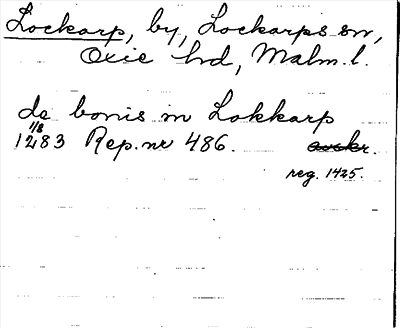 Lockarp, by, Lockarps sn,
Oxie hd, Malm. l.
de bonis in Lokkarp
1/8
1283 Rep. nr 486. avskr.
reg. 1425.